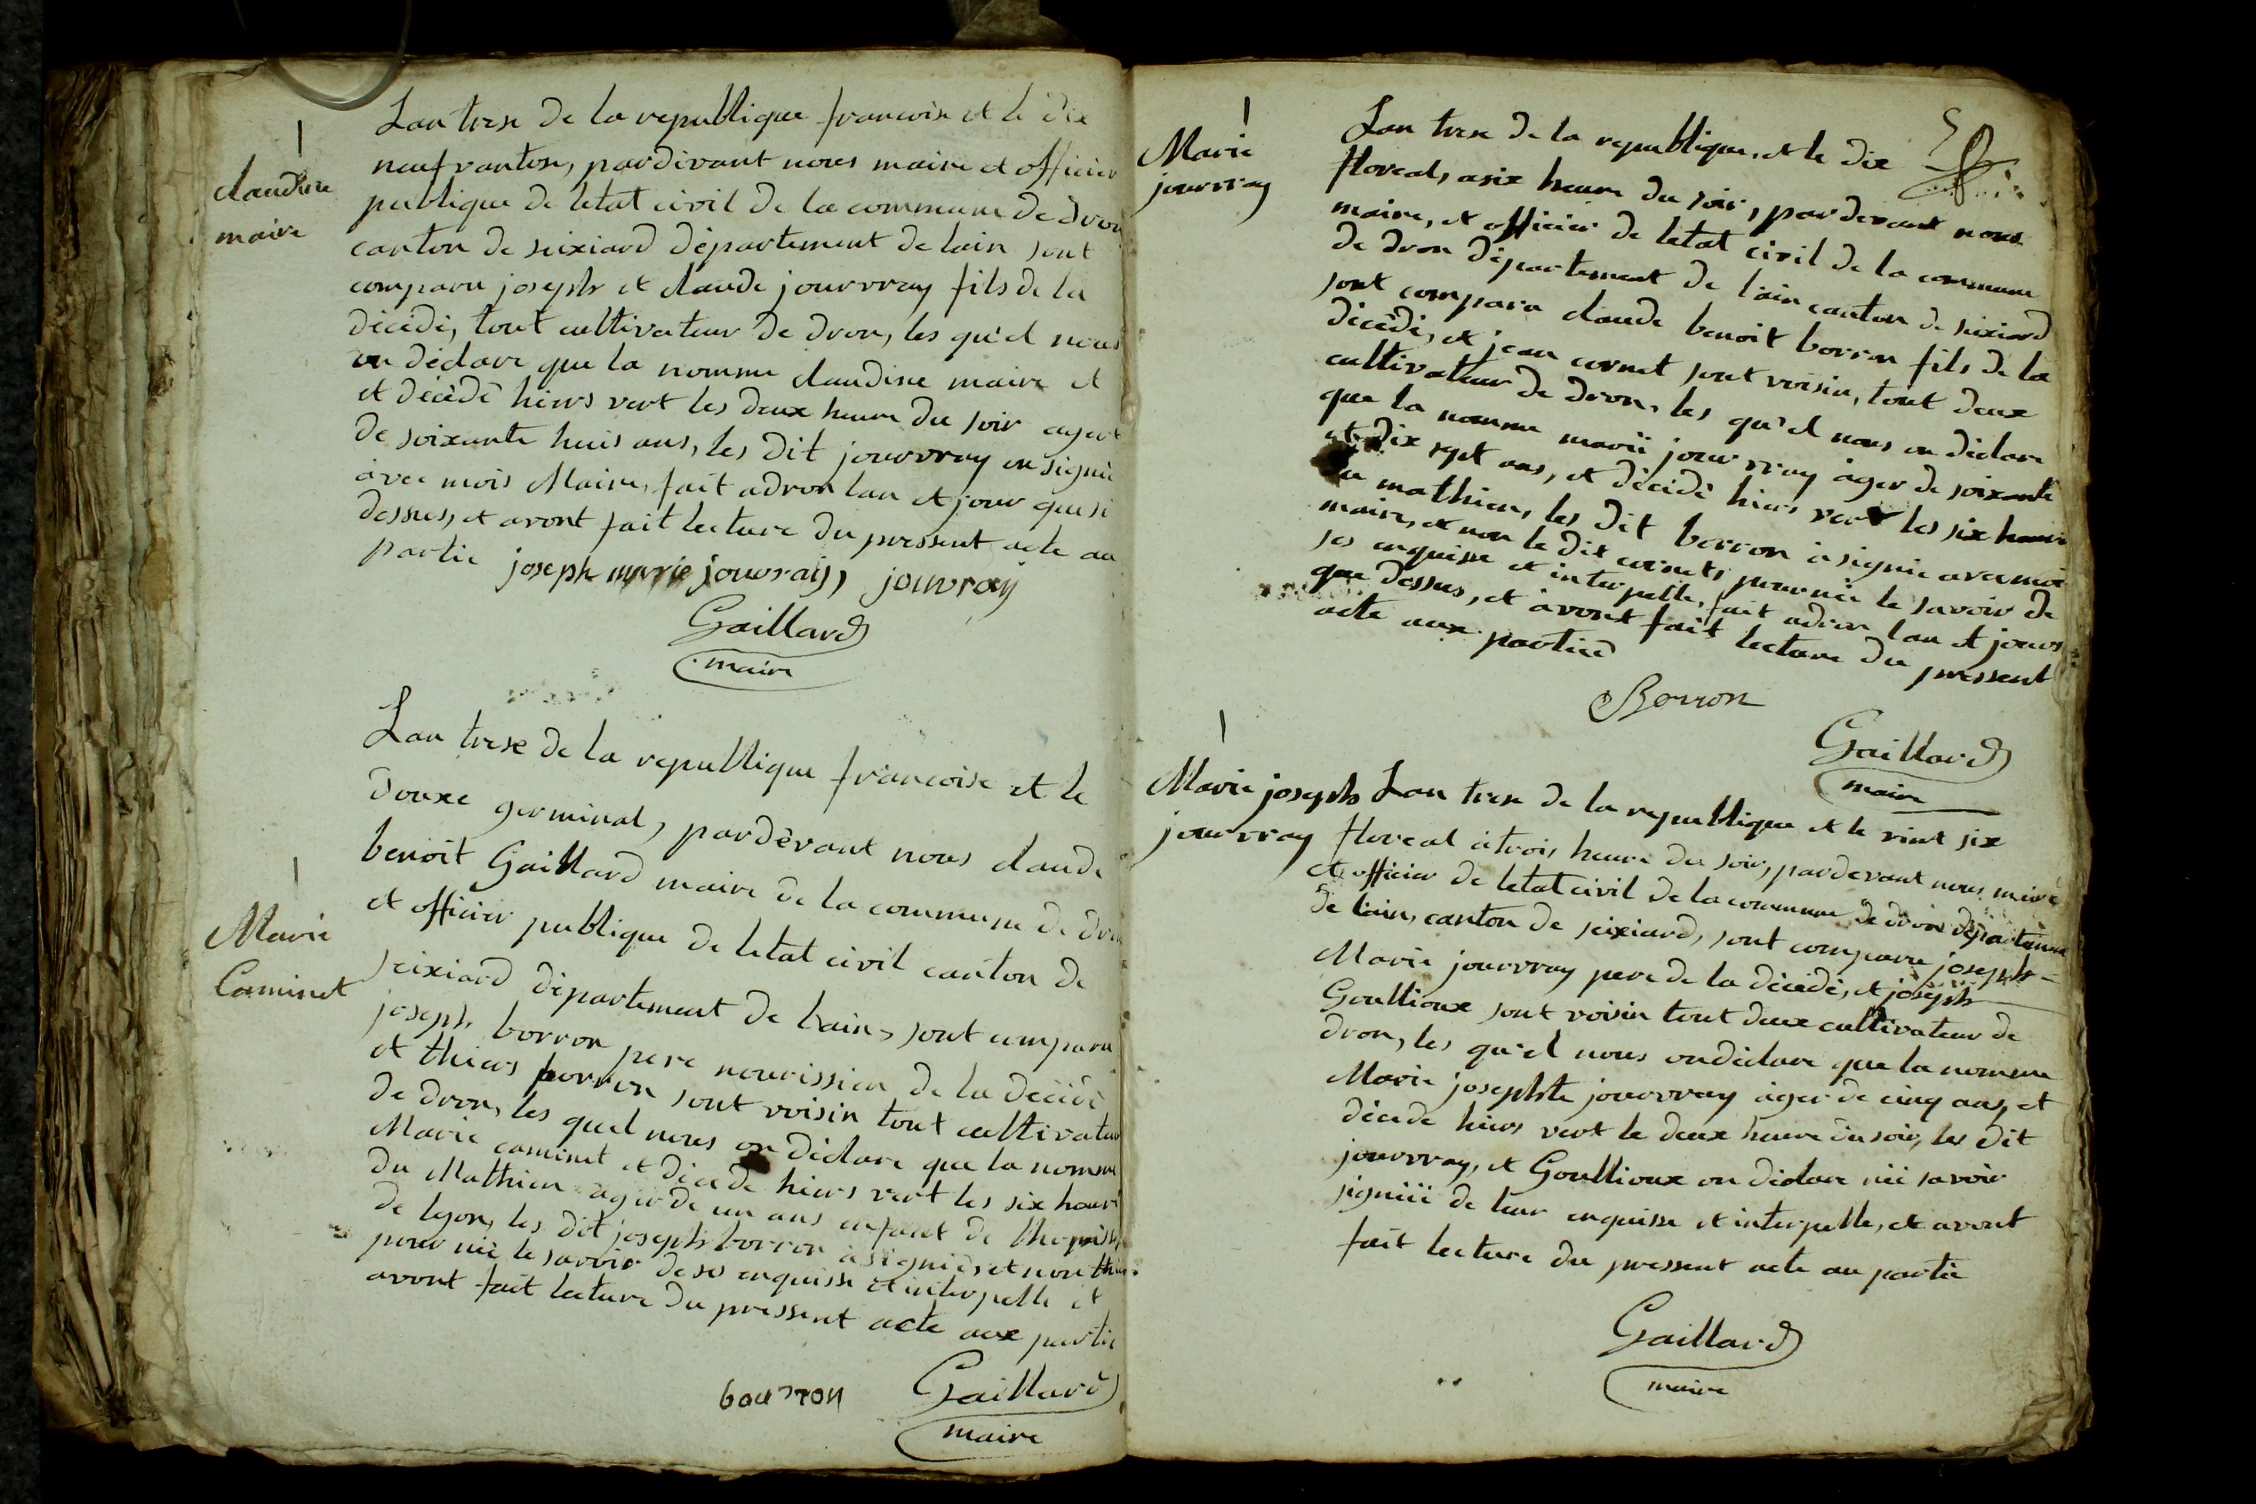 claudine
maire
Lan trese de la republique francoise et le dix
neuf vantose, pardevant nous maire et officier
publique de letat civil de la commune de dron
canton de seixiard département de lain sont
comparu joseph et claude jourvray fils de la
décédé, tout cultivateur de dron, les qu'el nous
on déclare que la nomme claudine maire et
et décédé hiers vert les deux heure du soir ager
de soixante huis ans, les dit jourvray on signié
avec mois Maire, fait a dron lan et jour que si
dessus, et avont fait lecture du pressent acte au
partie joseph marie jouvray, jouvray
Gaillard
maire
Marie
Caminet
Lan trese de la republique francoise et le
douxe germinal, pardevant nous claude
benoit Gaillard maire de la commune de dron
et officier publique de letat civil canton de
seixiard département de lain, sont comparu
joseph borron pere nourissien de la décédé
et thiers borron sont voisin tout cultivateur
de dron, les quel nous on déclare que la nomme
Marie caminet et décédé hiers vert les six heure
du Mathien ager de un ans enfant de
de lyon, les dit joseph borron a signiés, et non
pour nië le savoir de ses enquisse et interpelle et
avont fait lecture du pressent acte aux partie
bourron Gaillard
maire
5
Marie
jourvray
Lan trese de la republique, et le dix
floreal, a six heure du soir, pardevant nous
maire, et officier de letat civil de la commune
de dron département de l'ain canton de seixiard
sont comparu claude benoit borron fils de la
décédé, et jean cornet sont voisin, tout deux
cultivateur de dron, les qu'el nous on déclare
que la nomme marië jourvray áger de soixante
et dix sept ans, et décédé hiers vert les six heure
du mathien, les dit borron a signié avec moi
maire, et non le dit cornet, pour nië le savoir de
ses enquisse et interpelle, fait a dron lan et jour
que dessus, et avont fait lecture du pressent
acte aux partied
Borron
Gaillard
maire
Marie joseph
jourvray
Lan trese de la republique et le vint six
floreal á trois heure du soir, pardevant nous maire
et officier de letat civil de la commune de dron département
de lain, canton de seixiard, sont comparu joseph
Marie jourvray pere de la décédé, et joseph
Goullioux sont voisin tout deux cultivateur de
dron, les qu'el nous on déclare que la nomme
Marie josephte jourvray áger de cinq ans, et
décede hiers vert le deux heure du soir, les dit
jourvray, et Goullioux on déclare nië savoir
signiië de leur enquisse et interpelle, et avont
fait lecture du pressent acte au partie
Gaillard
maire